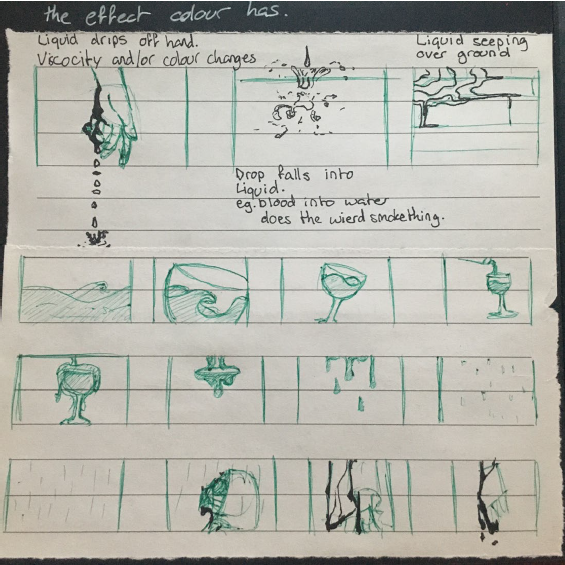 the effect colour has.
Liquid drips off hand.
Viscocity and/or colour changes
Liquid seeping
over ground
Drop falls into
Liquid.
eg. blood into water
does the wierd smokething.